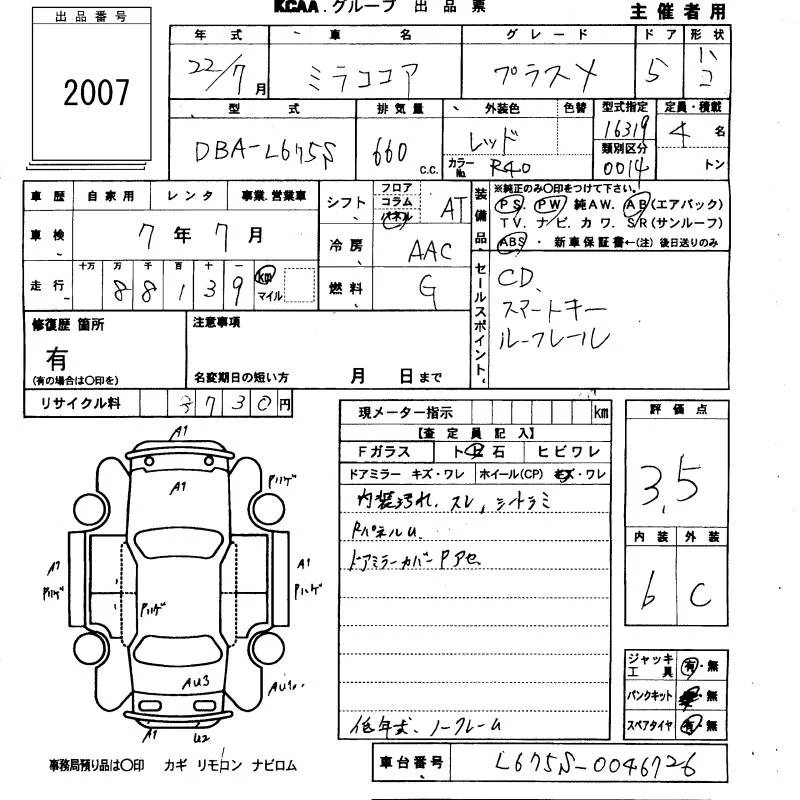 KCAA.グループ 出品票
主催者用
出品番号
2007
年式 車名 グレード ドア 形状
22/7月 ミラココア プラスX 5 ハコ
型式 排気量 外装色 色替 型式指定 定員・積載
DBA-L675S 660 C.C. レッド 16319 4名
カラーNo. R40 類別区分 0014 トン
車歴 自家用 レンタ 事業.営業車
車検 7年7月
走行 十万 万 千 百 十 一
88139 km マイル
シフト フロア コラム パネル AT
冷房 AAC
燃料 G
装備品
※純正のみ〇印をつけて下さい。
PS PW 純AW. AB(エアバック)
TV. ナビ. カワ. S/R(サンルーフ)
ABS ・ 新車保証書←(注) 後日送りのみ
セールスポイント
CD.
スマートキー
ルーフレール
修復歴 箇所
有
(有の場合は〇印を)
注意事項
名変期日の短い方 月 日まで
リサイクル料 7730円
現メーター指示 km
【査定員記入】
Fガラス ト 石 ヒビワレ
ドアミラー キズ・ワレ ホイール(CP) キズ・ワレ
内装汚れ、スレ、シートラミ
RパネルU.
ドアミラーカバーPアセ
低年式、ノークレーム
評価点
3.5
内装 外装
6 C
ジャッキ工具 有・無
パンクキット ・無
スペアタイヤ 有・無
A1
A1
Pハゲ
A1
Pハゲ
Pハゲ
A1
Pハゲ
AU3
A1
U2
事務局預り品は〇印 カギ リモコン ナビロム
車台番号 L675S-0046726